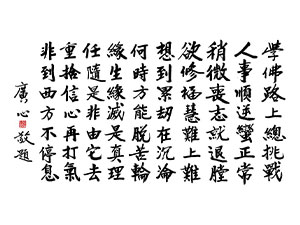 學佛路上總挑戰
人事順逆蠻正常
稍微喪志就退膛
欲修福慧難上難
想到累劫在沉淪
何時方能脫苦輪
緣生緣滅是真理
任隨是非由它去
重捨信心再打氣
非到西方不停息
廣心敬題